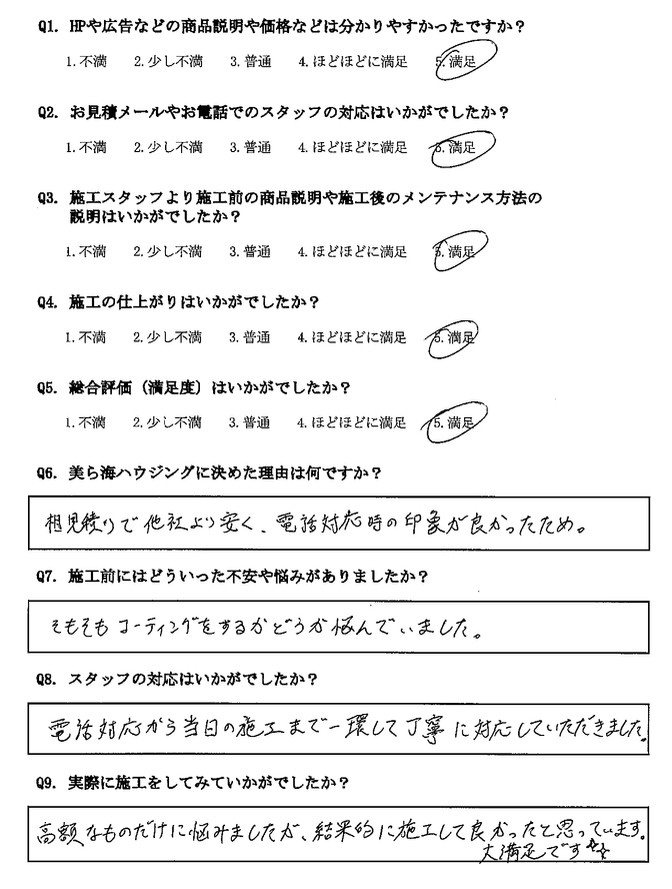 Q1. HPや広告などの商品説明や価格などは分かりやすかったですか？
1.不満 2.少し不満 3.普通 4.ほどほどに満足 5.満足
Q2. お見積メールやお電話でのスタッフの対応はいかがでしたか？
1.不満 2.少し不満 3.普通 4.ほどほどに満足 5.満足
Q3. 施工スタッフより施工前の商品説明や施工後のメンテナンス方法の
説明はいかがでしたか？
1.不満 2.少し不満 3.普通 4.ほどほどに満足 5.満足
Q4. 施工の仕上がりはいかがでしたか？
1.不満 2.少し不満 3.普通 4.ほどほどに満足 5.満足
Q5. 総合評価（満足度）はいかがでしたか？
1.不満 2.少し不満 3.普通 4.ほどほどに満足 5.満足
Q6. 美ら海ハウジングに決めた理由は何ですか？
相見積りで他社より安く、電話対応時の印象が良かったため。
Q7. 施工前にはどういった不安や悩みがありましたか？
そもそもコーティングをするかどうか悩んでいました。
Q8. スタッフの対応はいかがでしたか？
電話対応から当日の施工まで一環して丁寧に対応していただきました。
Q9. 実際に施工をしてみていかがでしたか？
高額なものだけに悩みましたが、結果的に施工して良かったと思っています。
大満足です☆☆